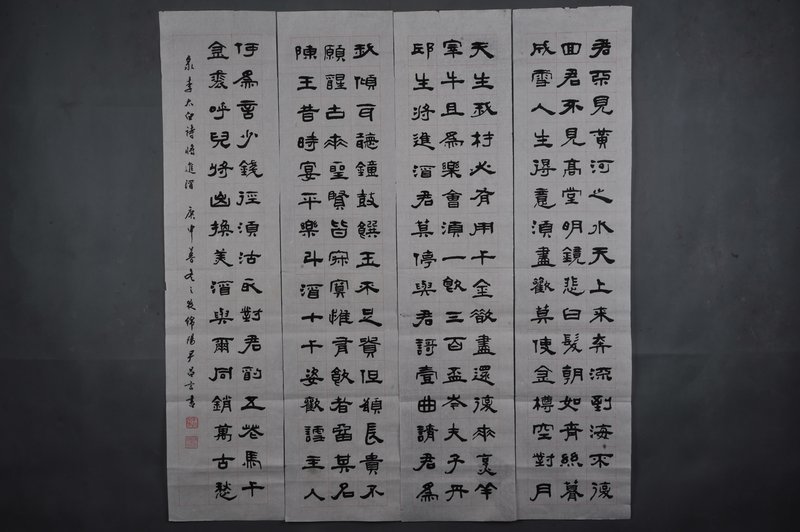 君不見黃河之水天上來奔流到海不復
回君不見高堂明鏡悲白髮朝如青絲暮
成雪人生得意須盡歡莫使金樽空對月
天生我材必有用千金散盡還復來烹羊
宰牛且為樂會須一飲三百盃岑夫子丹
邱生將進酒君莫停與君歌壹曲請君為
我傾耳聽鐘鼓饌玉不足貴但願長貴不
願醒古來聖賢皆寂寞惟有飲者留其名
陳王昔時宴平樂斗酒十千姿歡謔主人
何為言少錢徑須沽取對君酌五花馬千
金裘呼兒將出換美酒與爾同銷萬古愁
錄李太白詩將進酒 庚申暮冬之 綿陽尹昌言書